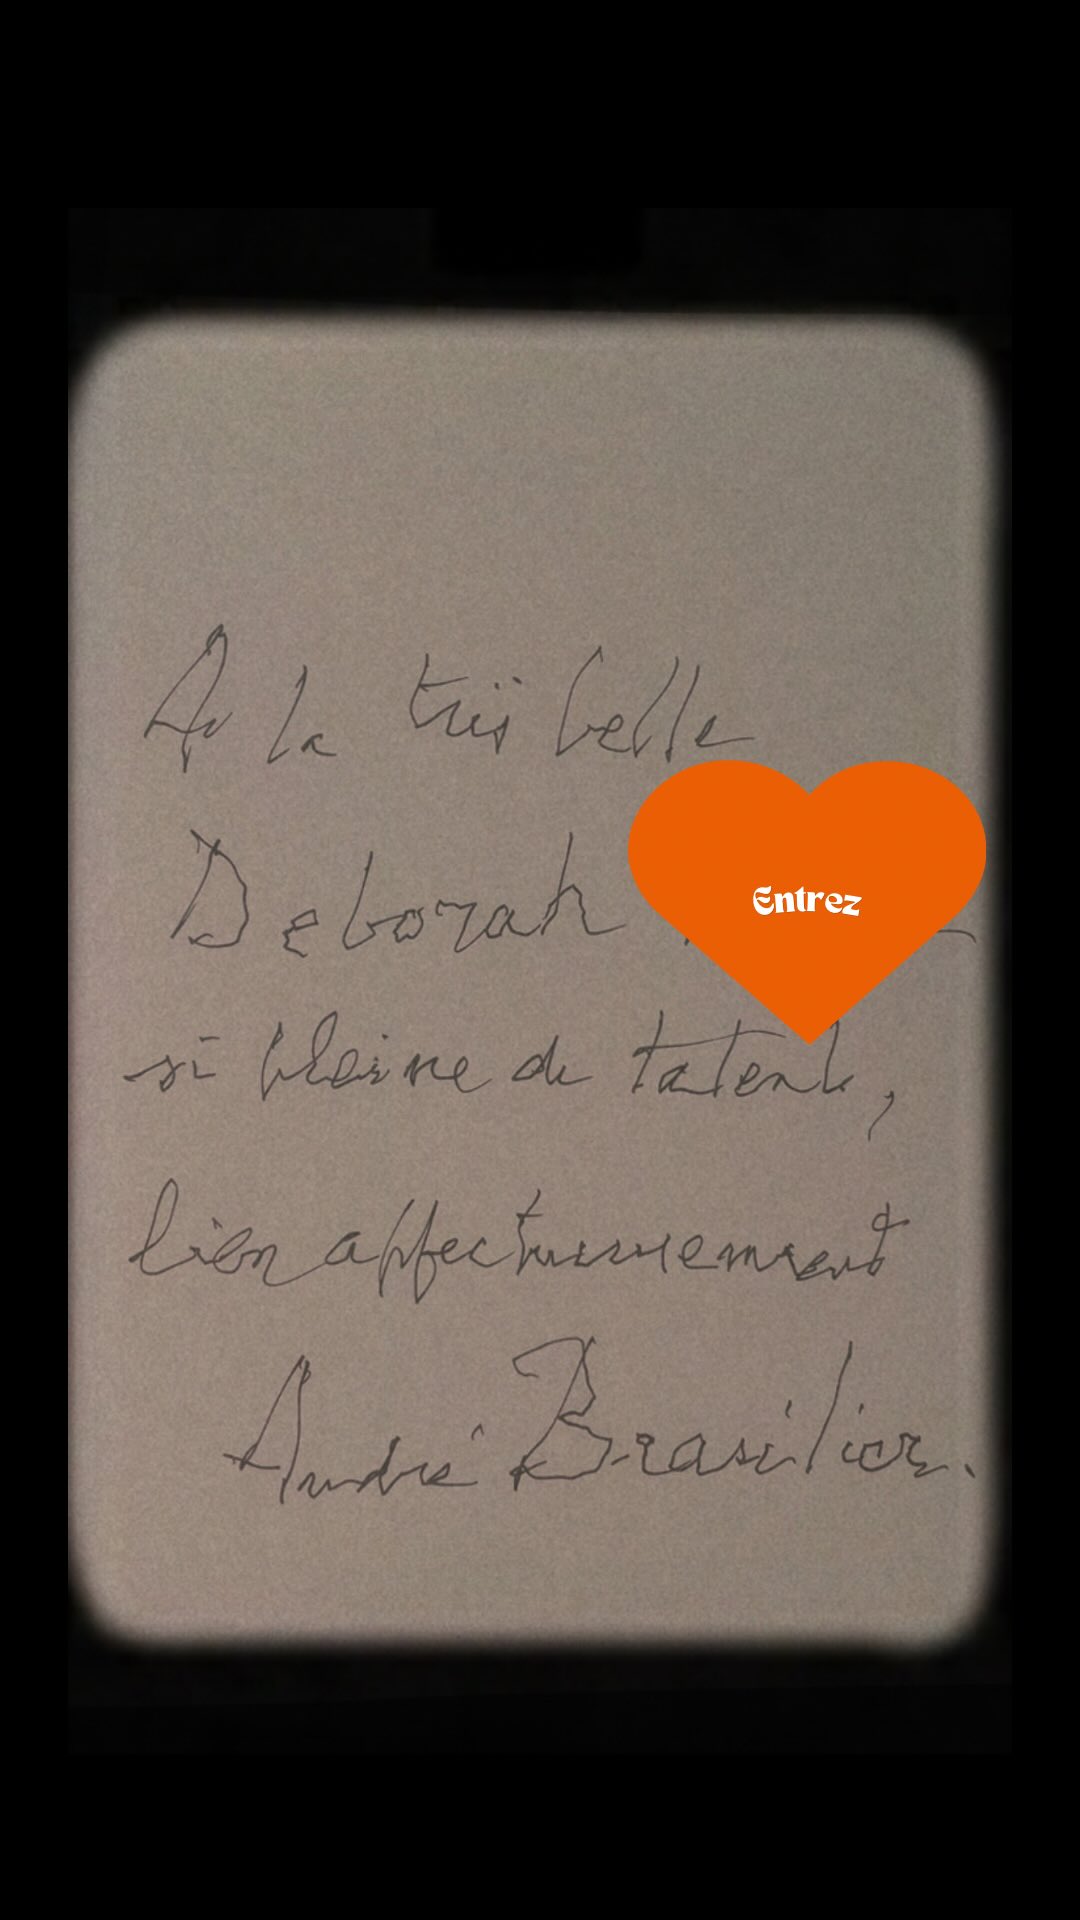 A la très belle
Deborah
Entrez
si pleine de talent,
bien affectueusement
André Brasilier.